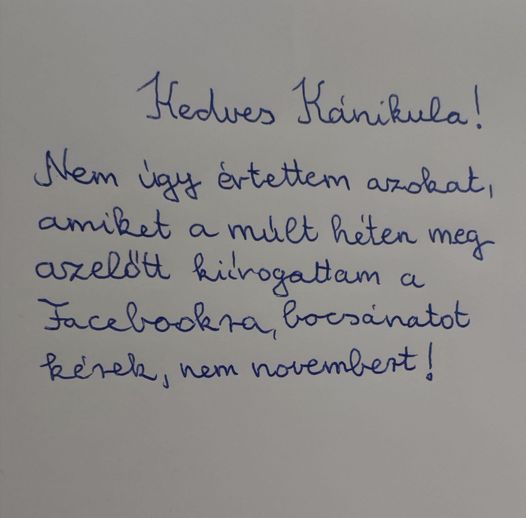 Kedves Kánikula!
Nem úgy értettem azokat,
amiket a múlt héten meg
azelőtt kiírogattam a
Facebookra, bocsánatot
kérek, nem novembert!